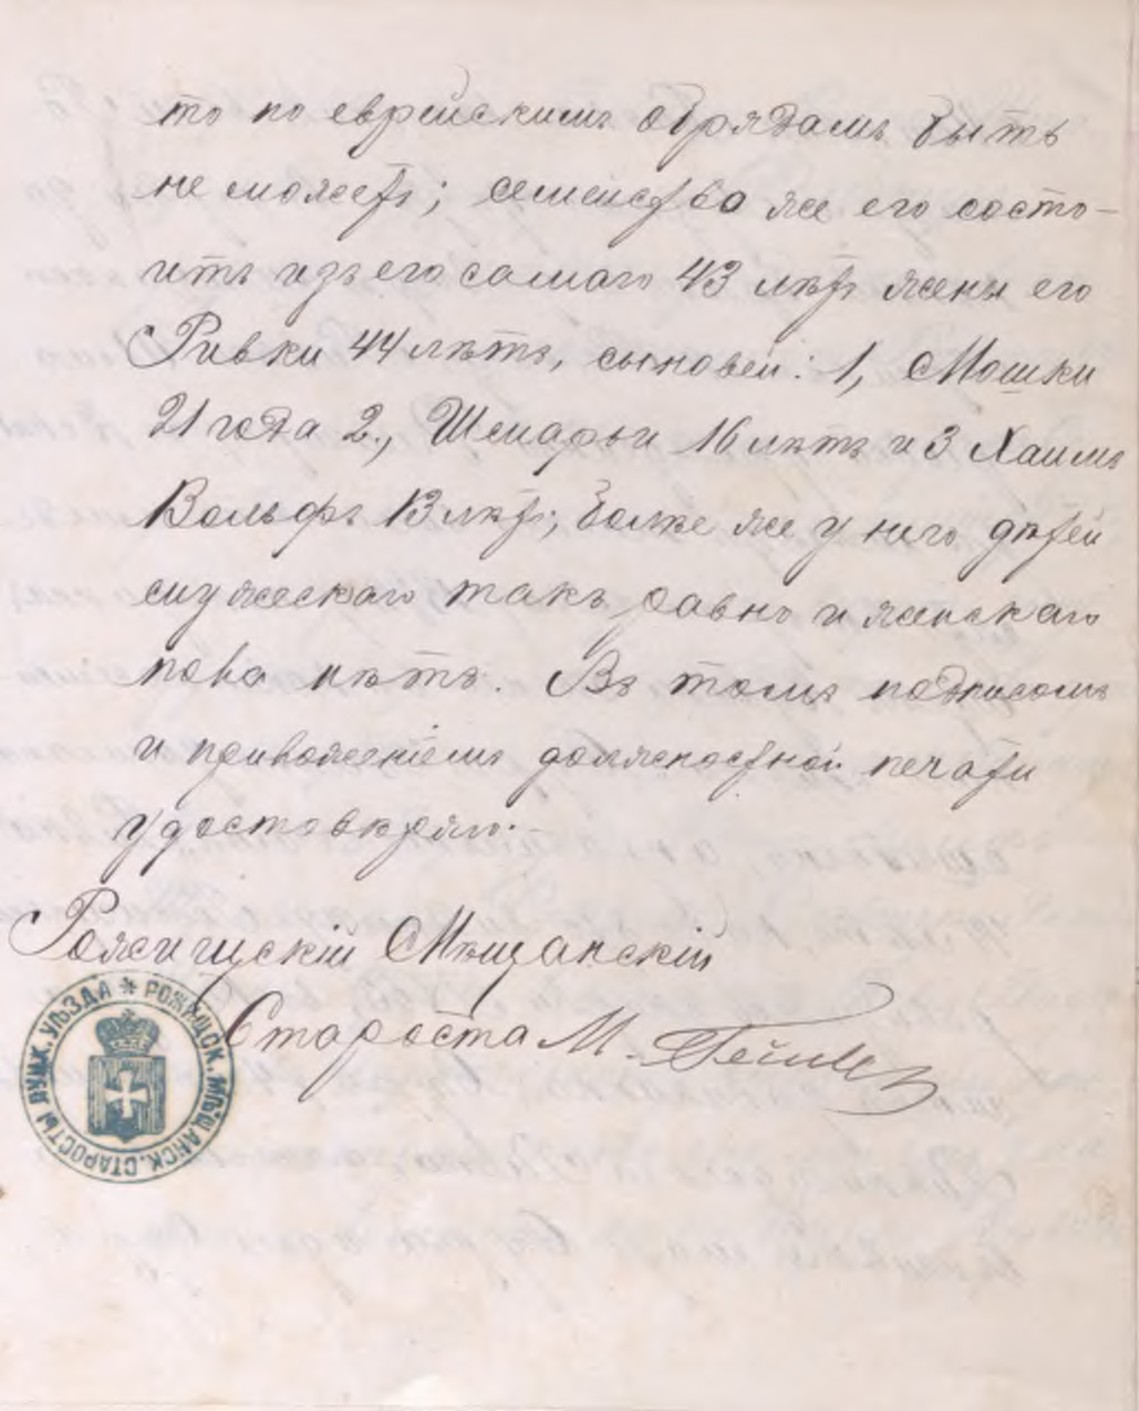 то по еврейскимъ обрядамъ быть
не можетъ; семейство же его состо-
итъ изъ его самаго 43 лѣтъ жены его
Ривки 44 лѣтъ, сыновей: 1, Мошки
21 года 2., Шмарьи 16 лѣтъ и 3 Хаимъ
Вольфъ 13 лѣтъ; болѣе же у него дѣтей
мужескаго такъ равно и женскаго
пола нѣтъ. Въ томъ подписомъ
и приложеніемъ должностной печати
удостовѣряю.-
Рожищскій Мѣщанскій
Староста М.
РОЖИЩСК. МѢЩАНСК. СТАРОСТЫ ЛУЦК. УѢЗДА